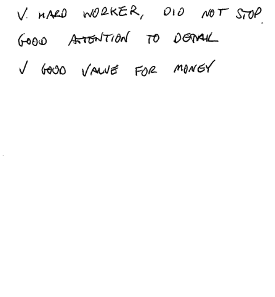 V. HARD WORKER, DID NOT STOP.
GOOD ATTENTION TO DETAIL
V GOOD VALUE FOR MONEY